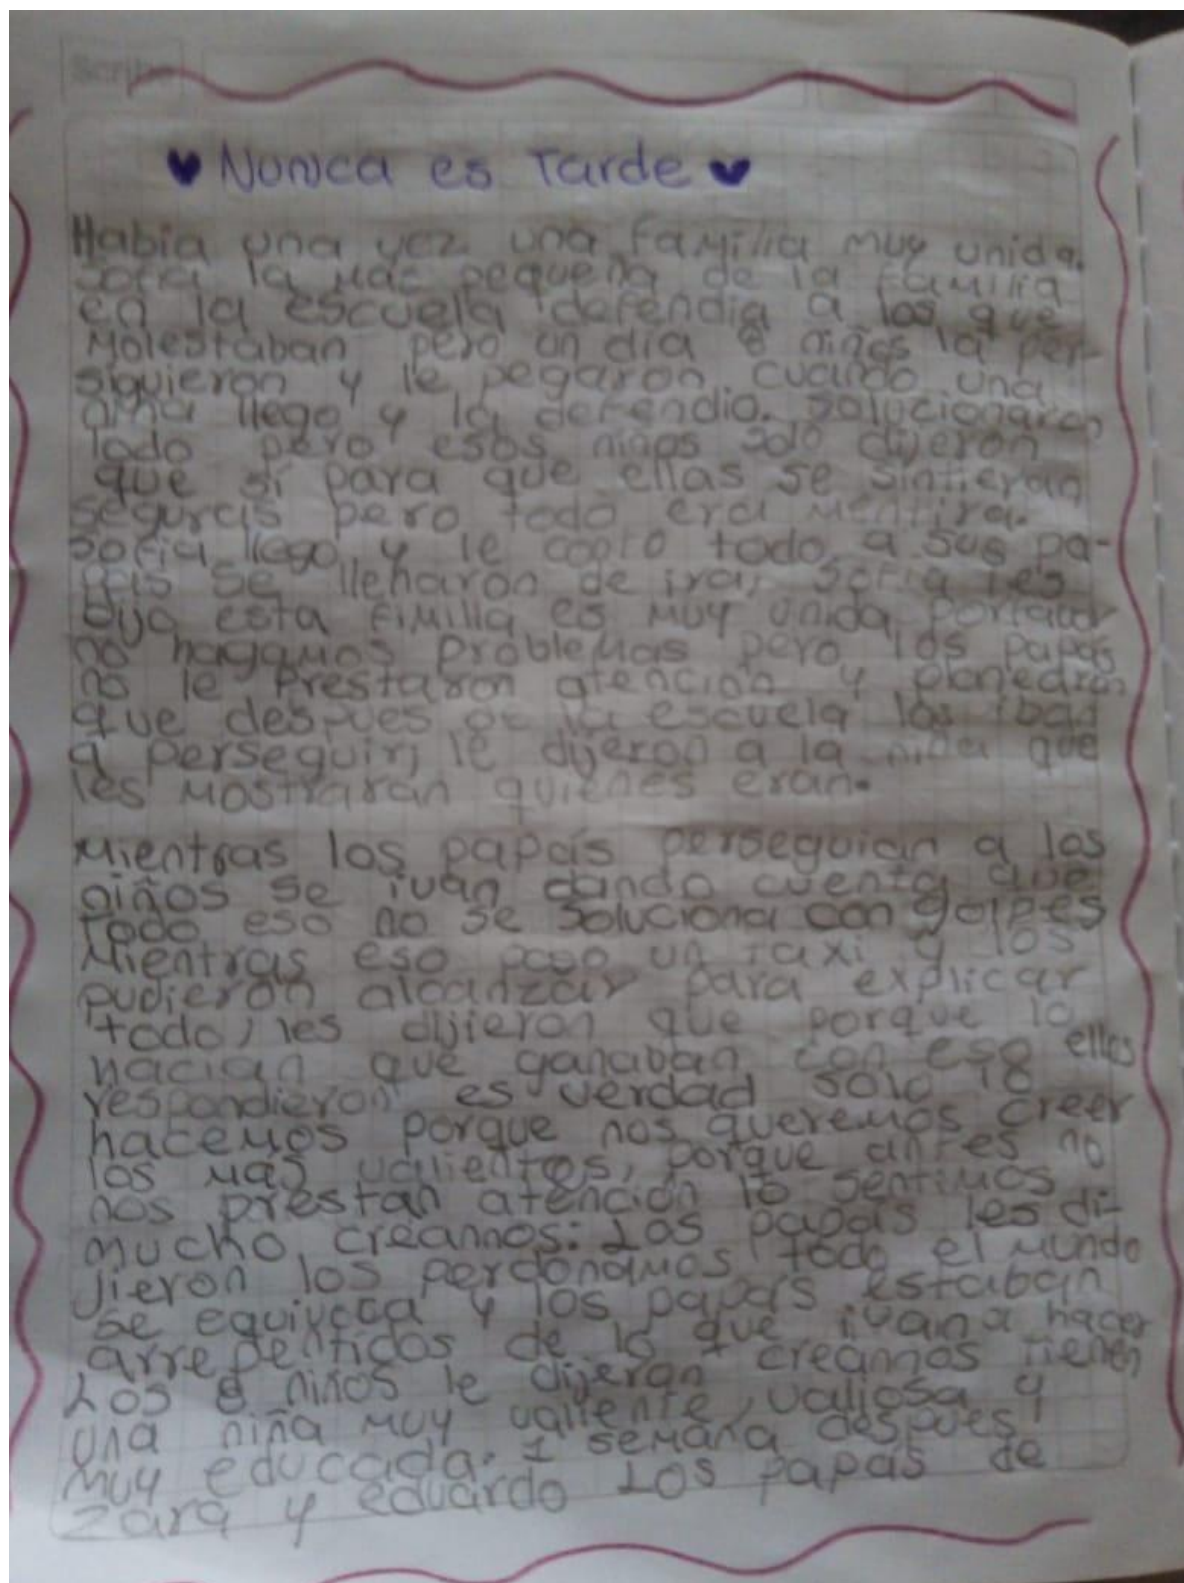 Scribe
♥ Nunca es Tarde ♥
Habia una vez una familia muy unida.
Sofia la mas pequeña de la familia
en la escuela defendia a los que
molestaban pero un dia 8 niños la per-
siguieron y le pegaron cuando una
niña llego y la defendio. Solucionaron
todo pero esos niños solo dijeron
que si para que ellas se sintieran
seguras pero todo era mentira.
Sofia llego y le conto todo a sus pa-
pas se llenaron de ira, Sofia les
Dijo esta fimilia es muy unida porfavor
no hagamos problemas pero los papas
no le Prestaron atencion y planearon
que despues de la escuela los iban
a perseguir, le dijeron a la niña que
les mostraran quienes eran.
Mientras los papás perseguian a los
niños se ivan dando cuenta que
todo eso no se soluciona con golpes
Mientras eso paso un taxi y los
pudieron alcanzar para explicar
todo, les dijieron que porque lo
hacian que ganaban con eso ellos
respondieron es verdad solo lo
hacemos porque nos queremos creer
los mas valientes, porque antes no
nos prestan atención lo sentimos
mucho, creannos: Los papás les di-
jieron los perdonamos todo el mundo
se equivoca y los papás estaban
arrepentidos de lo que ivan a hacer
Los 8 niños le dijeron creannos tienen
una niña muy valiente, valiosa y
muy educada. 1 semana despues
zara y eduardo Los papás de